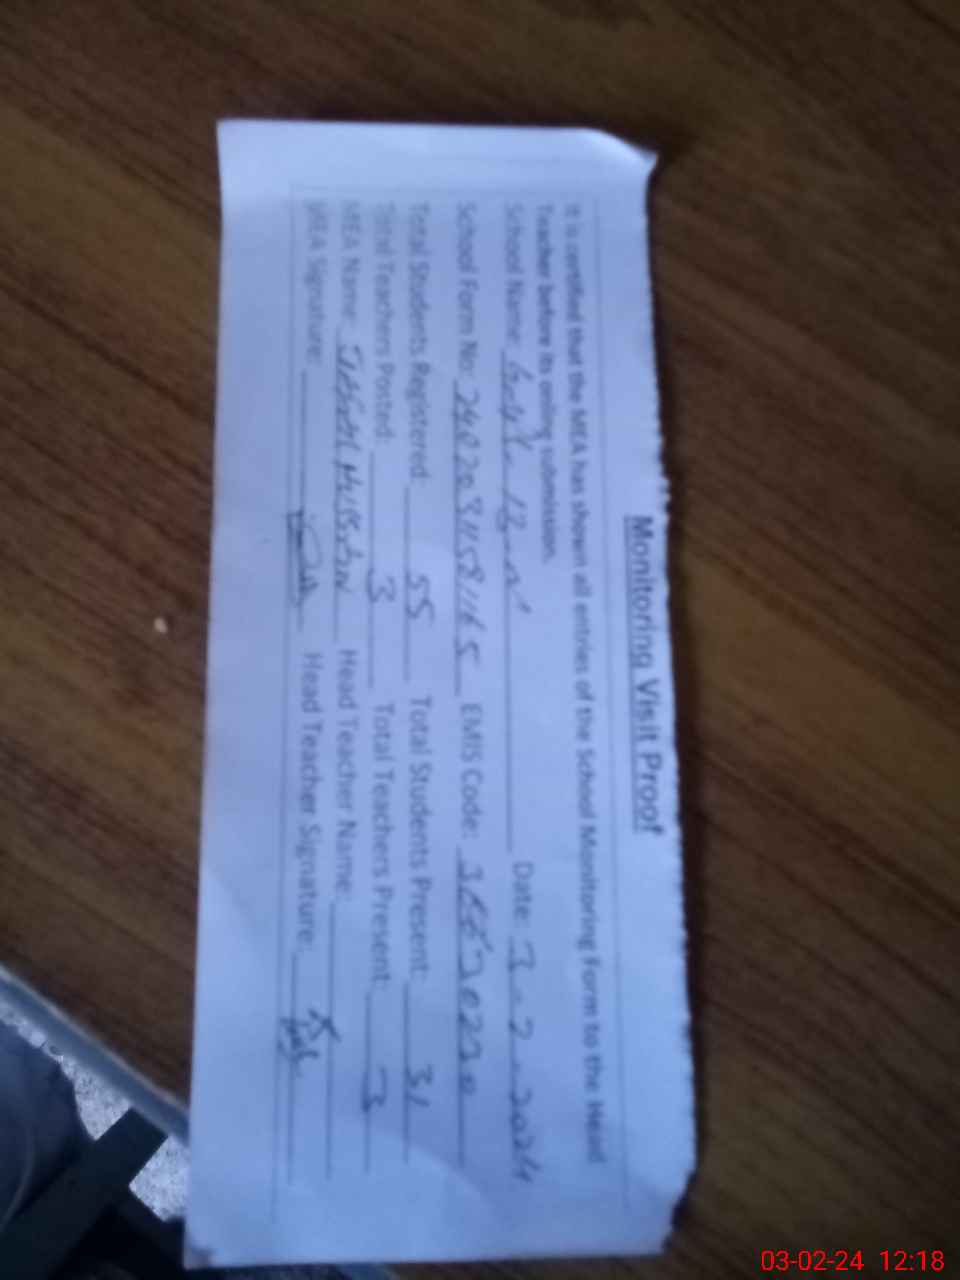 Monitoring Visit Proof
It is certified that the MEA has shown all entries of the School Monitoring Form to the Head
Teacher before its online submission.
School Name: Date: 3-2-2024
School Form No: EMIS Code:
Total Students Registered: 55 Total Students Present: 31
Total Teachers Posted: 3 Total Teachers Present: 3
MEA Name: Head Teacher Name:
MEA Signature: Head Teacher Signature:
03-02-24 12:18